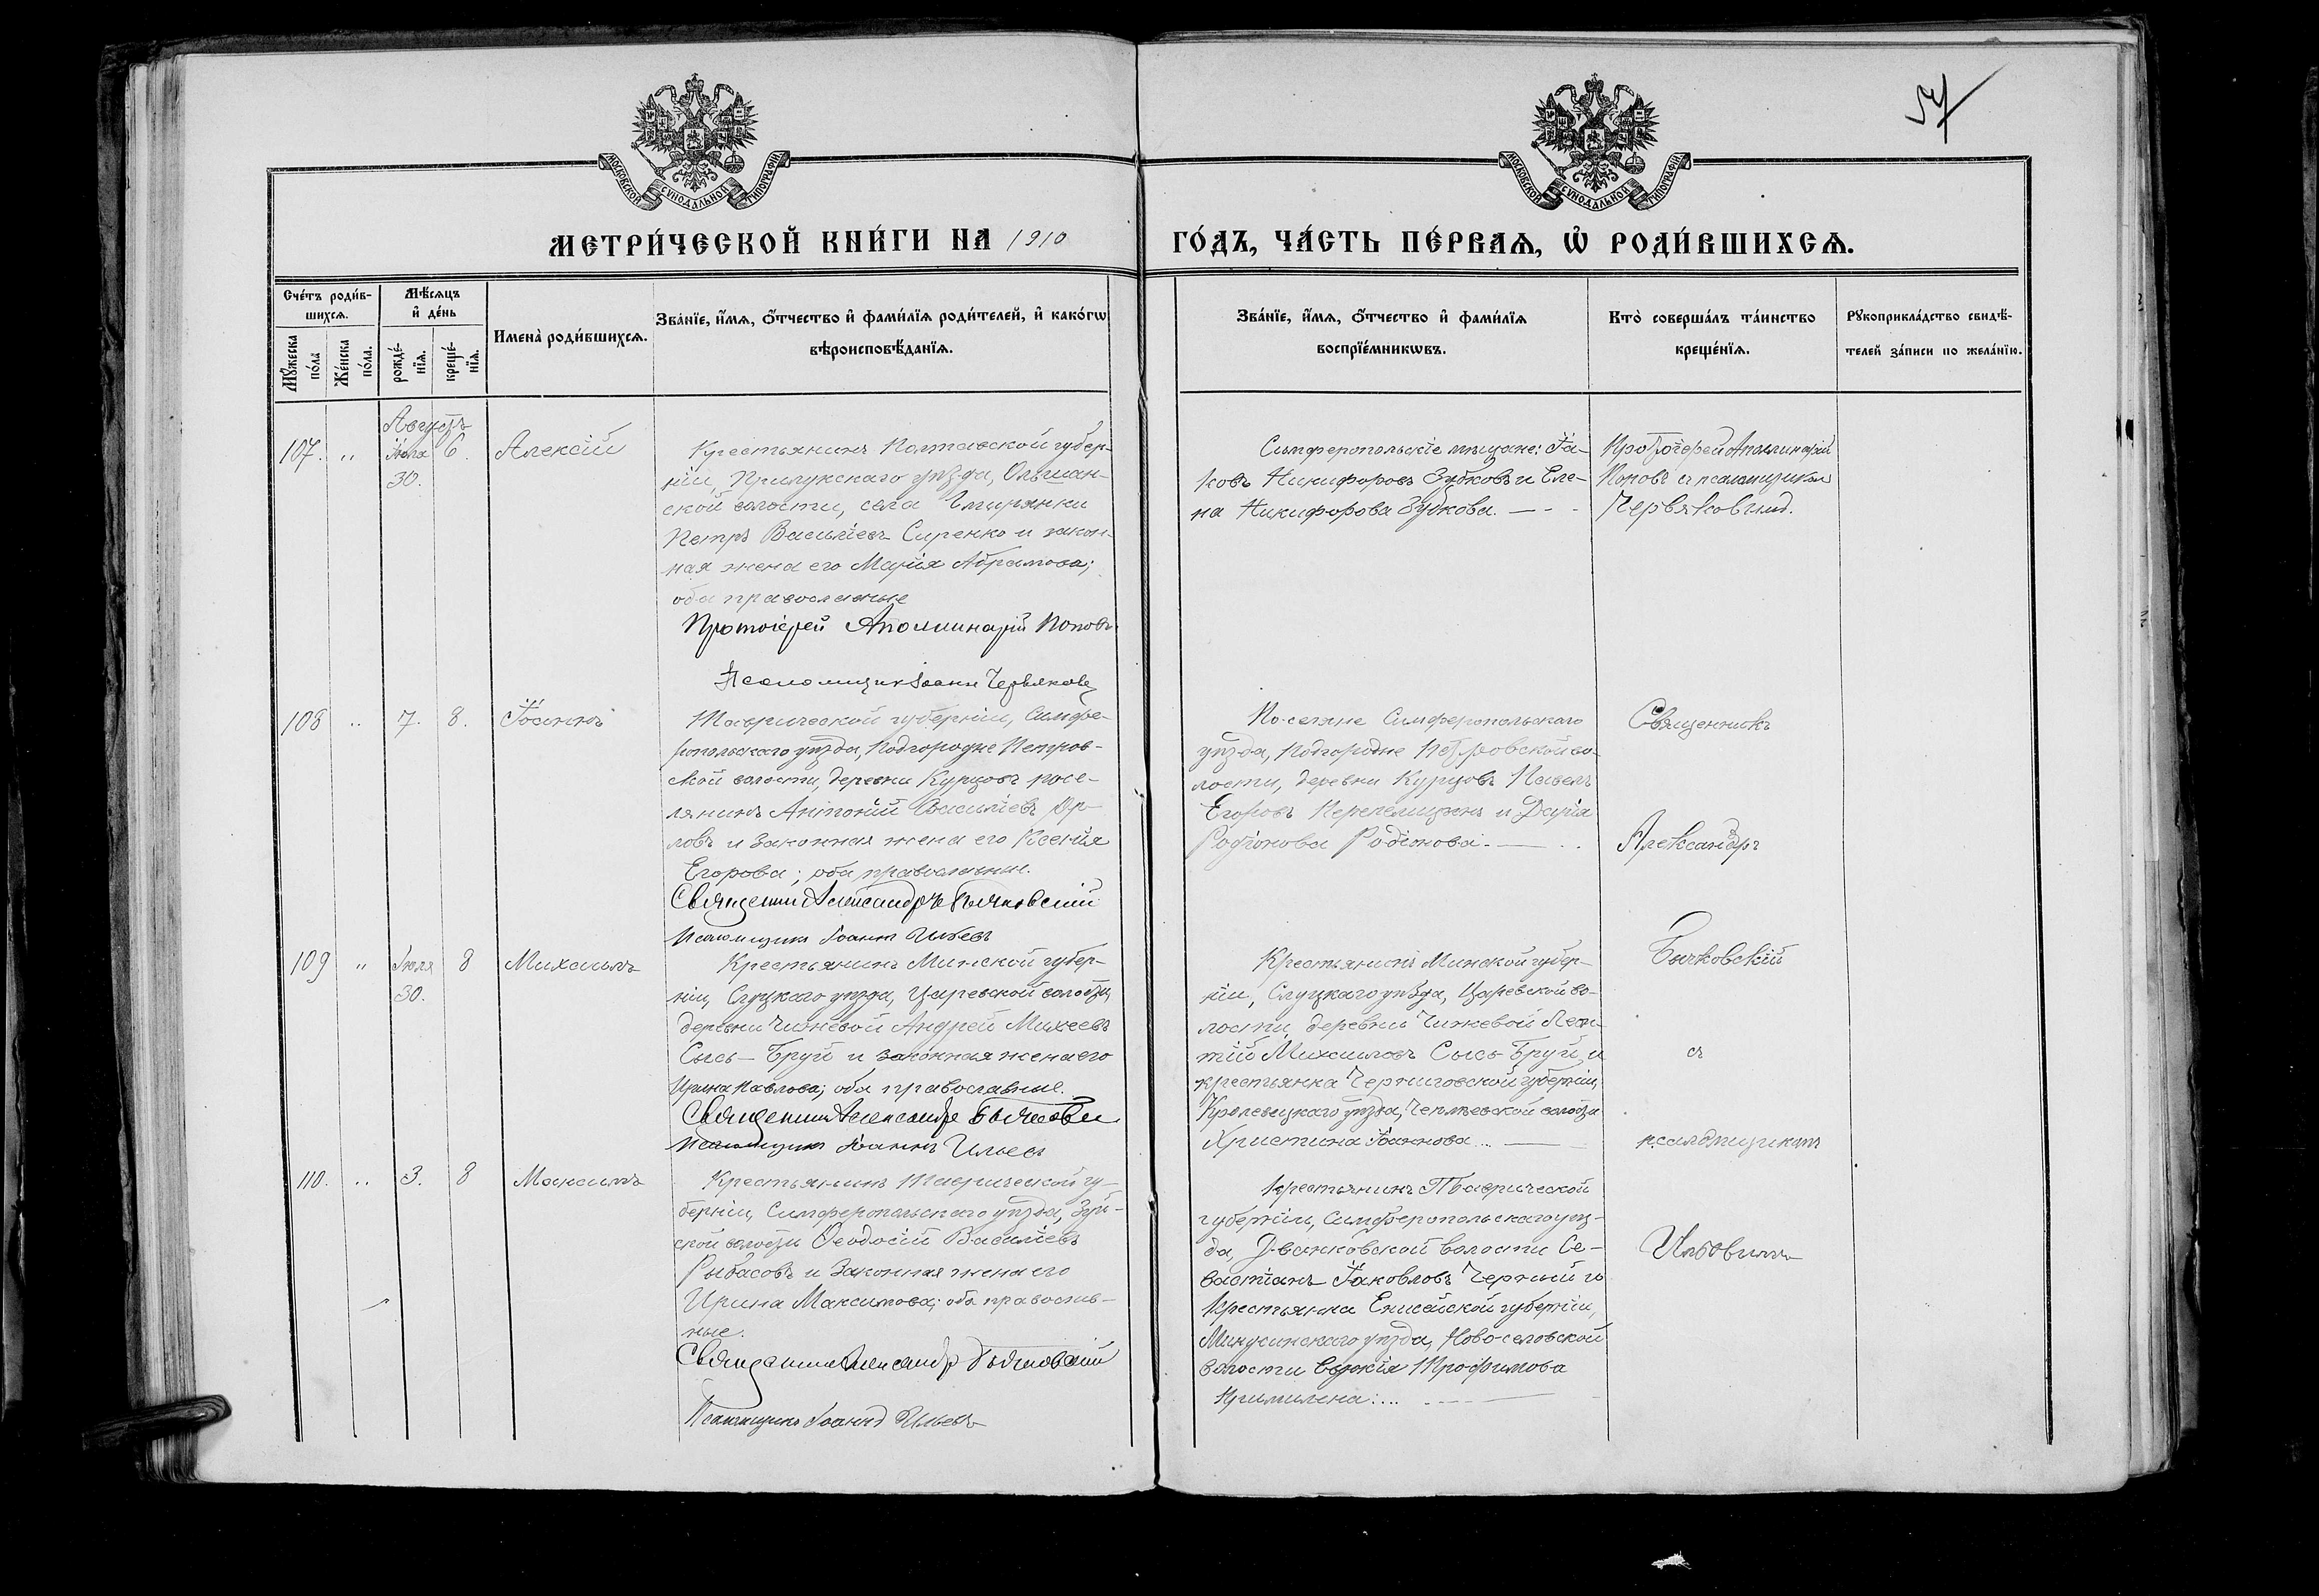 57
МОСКОВСКОЙ СѴНОДАЛЬНОЙ ТИПОГРАФІИ
МОСКОВСКОЙ СѴНОДАЛЬНОЙ ТИПОГРАФІИ
МЕТРИ́ЧЕСКОЙ КНИ́ГИ НА 1910
ГО́ДЪ, ЧА́СТЬ ПЕ́РВАѦ, Ѡ҆ РОДИ́ВШИХСѦ.
Сче́тъ роди́в-
шихсѧ.
Мꙋ́жеска по́ла
Же́нска по́ла.
Мѣ́сѧцъ
и҆ де́нь
рожде́-
нїѧ.
креще́-
нїѧ.
Имена̀ роди́вшихсѧ.
Зва́нїе, и҆́мѧ, ѻ҆́тчество и҆ фами́лїѧ роди́телей, и҆ како́гѡ
вѣроисповѣ́данїѧ.
Зва́нїе, и҆́мѧ, ѻ҆́тчество и҆ фами́лїѧ
воспрїе́мникѡвъ.
Кто̀ соверша́лъ та́инство
креще́нїѧ.
Рꙋкоприкла́дство свидѣ́-
телей за́писи по жела́нїю.
Августъ
107. " Іюля 6. Алексій
30.
Крестьянинъ Полтавской губер-
ніи, Прилукскаго уѣзда, Ольшан-
ской волости, села
Петръ Васильевъ Сиренко и закон-
ная жена его Марія Абрамова;
оба православные
Протоіерей Аполлинарій Поповъ
Псаломщик Іоанн Червяковъ
Симферопольскіе мѣщане: Іа-
ковъ Никифоровъ Зубковъ и Еле-
на Никифорова Зубкова.
Протоіерей Аполлинарій
Поповъ съ псаломщикомъ
Червяковымъ.
108 " 7. 8. Іоаннъ
Таврической губерніи, Симфе-
ропольскаго уѣзда, Подгородне Петров-
ской волости, деревни Курцовъ посе-
лянинъ Антоній Васильевъ Ор-
ловъ и законная жена его Ксенія
Егорова; оба православные.
Священник Александръ Бычковскій
Псаломщикъ Іоаннъ Ильевъ
Поселяне Симферопольскаго
уѣзда, Подгородне Петровской во-
лости, деревни Курцовъ Павелъ
Егоровъ и Дарія
Родіонова Родіонова.
Священникъ
Александръ
Бычковскій
съ
псаломщикомъ
Ильевымъ
109 " Іюля 8 Михаилъ
30.
Крестьянинъ Минской губер-
ніи, Слуцкаго уѣзда, Царевской волости,
деревни Чижевой Андрей Михеевъ
Сысь-Бруй и законная жена его
Ирина Павлова; оба православные.
Священник Александръ
Псаломщикъ Іоаннъ Ильевъ
Крестьянинъ Минской губер-
ніи, Слуцкаго уѣзда, Царевской во-
лости, деревни Чижевой Леон-
тій Михаиловъ Сысь-Бруй и
крестьянка Черниговской губерніи,
Кролевецкаго уѣзда, волости
Христина Іоаннова
110. " 3. 8 Максимъ
Крестьянинъ Таврической гу-
берніи, Симферопольскаго уѣзда, Зуй-
ской волости Ѳеодосій Васильевъ
Рыбасовъ и законная жена его
Ирина Максимова; оба православ-
ные.
Священникъ Александръ Бычковскій
Псаломщикъ Іоаннъ Ильевъ
Крестьянинъ Таврической
губерніи, Симферопольскаго уѣз-
да, волости Се-
вастіанъ Іаковлевъ Черный и
крестьянка Енисейской губерніи,
Минусинскаго уѣзда, Ново-селовской
волости Трофимова